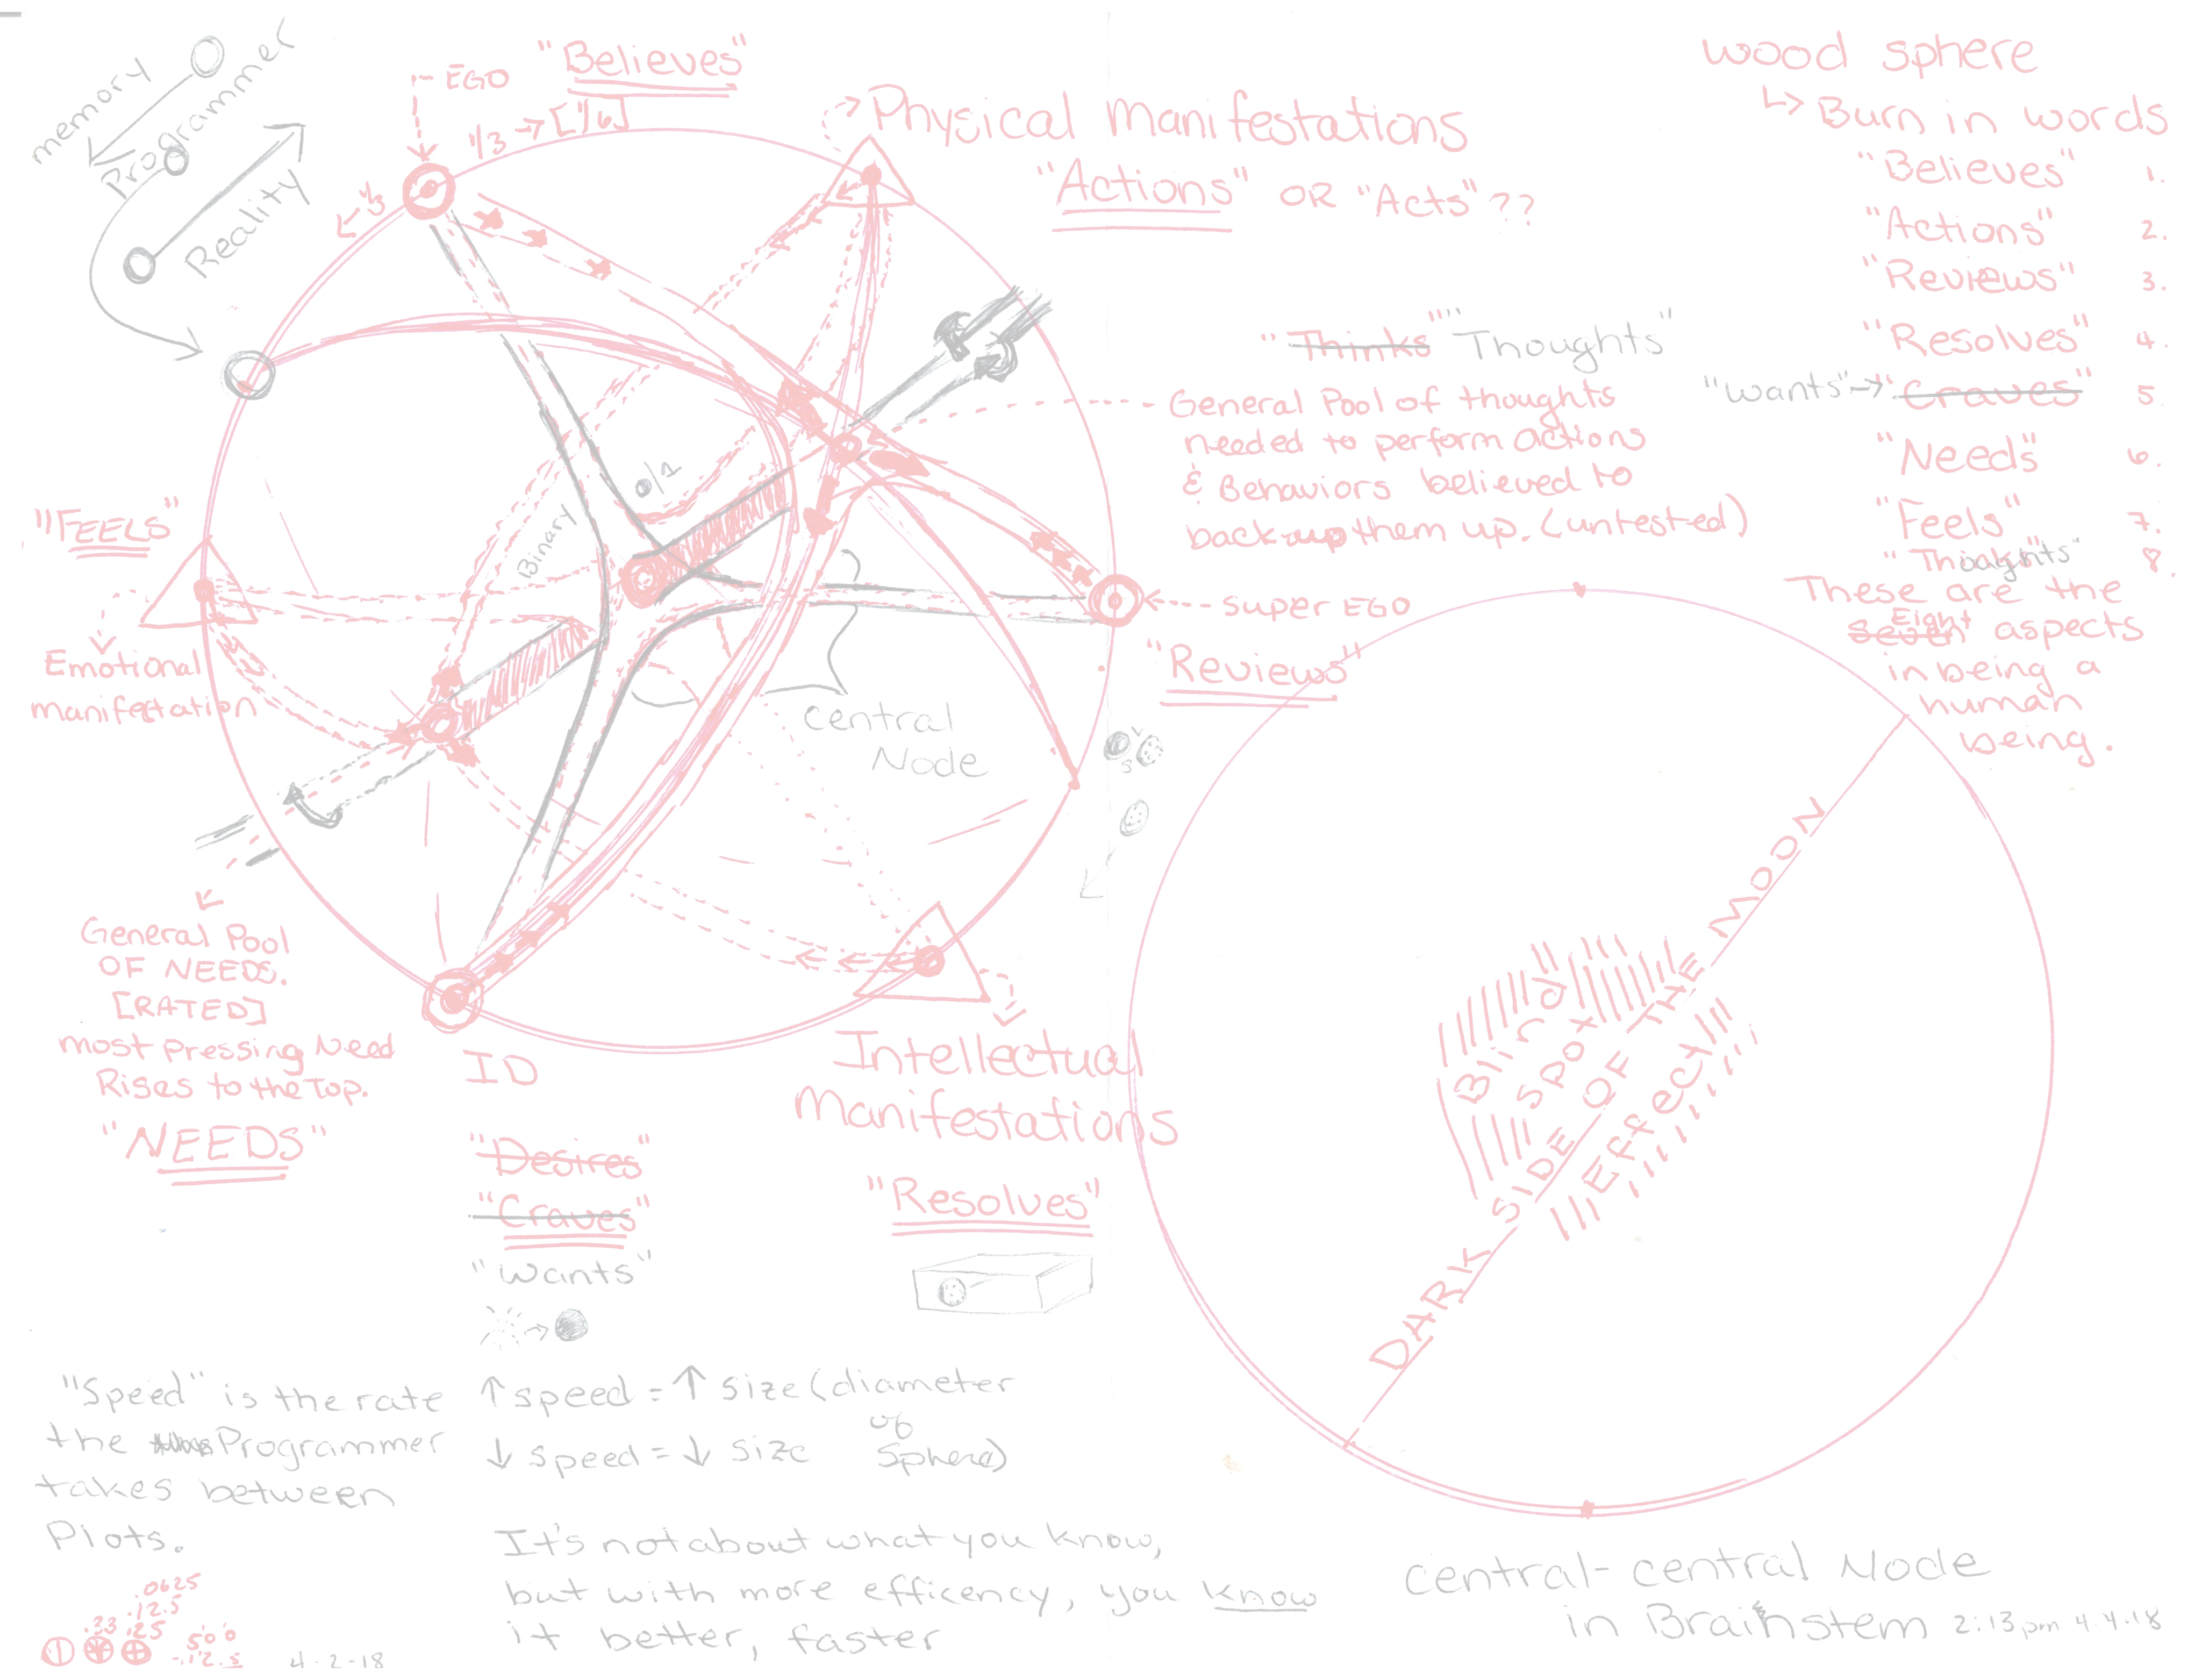 memory
Programmer
Reality
EGO
"Believes"
1/3 → [1/6]
1/3
Physical Manifestations
"Actions" OR "Acts"??
wood sphere
↳ Burn in words
"Believes" 1.
"Actions" 2.
"Reviews" 3.
"Resolves" 4.
"Wants" → "Craves" 5.
"Needs" 6.
"Feels" 7.
"Thoughts" 8.
These are the
seven Eight aspects
in being a
human
being.
"Thinks" "Thoughts"
General Pool of thoughts
needed to perform actions
& Behaviors believed to
back up them up. (untested)
0/1
Binary
"FEELS"
Emotional
manifestation
Super EGO
"Reviews"
Central
Node
General Pool
OF NEEDS.
[RATED]
most pressing Need
Rises to the top.
"NEEDS"
ID
"Desires"
"Craves"
"Wants"
Intellectual
Manifestations
"Resolves"
Blind
Spot
DARK SIDE OF THE MOON
Effect
"Speed" is the rate
the Programmer
takes between
Plots.
↑ speed = ↑ size (diameter
of
↓ speed = ↓ size Sphere)
It's not about what you know,
but with more efficency, you know
it better, faster
.0625
.12.5
.33 .25
50%
-.12.5
4-2-18
Central-central Node
in Brainstem 2:13pm 4.4.18